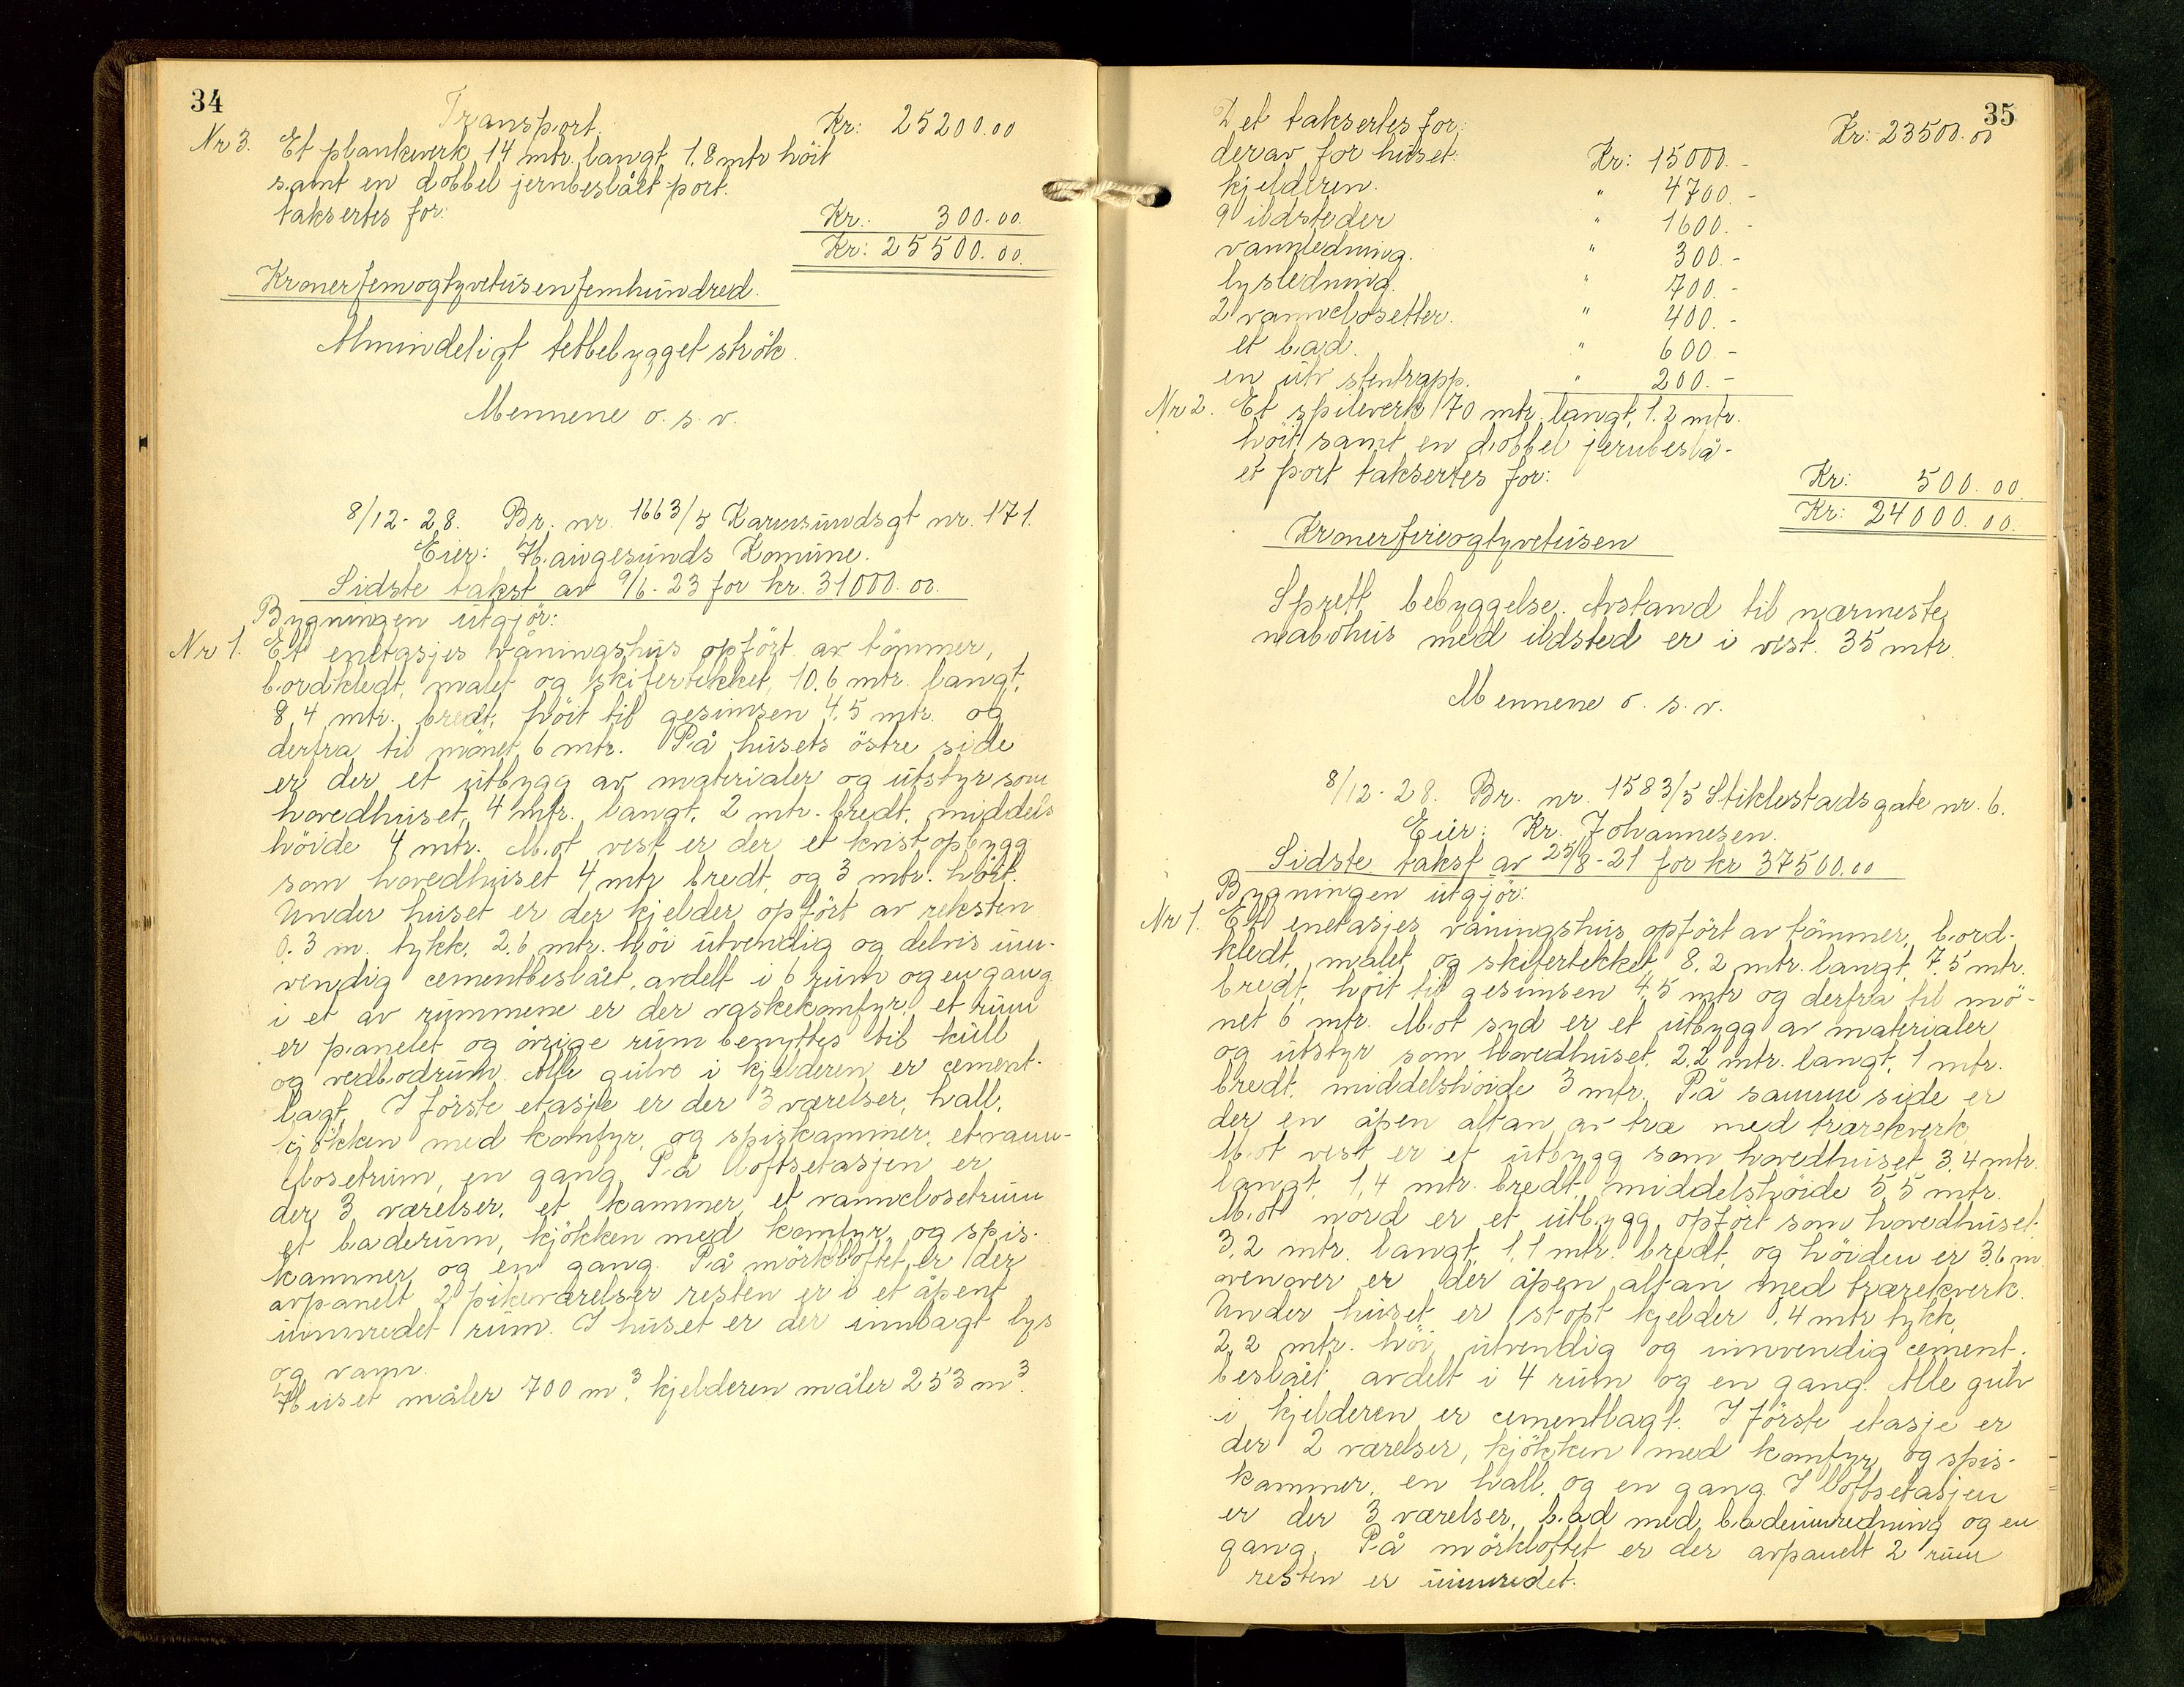 34
Transport. Kr: 25200.00
Nr 3. Et plankeverk 14 mtr. langt 1.8 mtr höit
samt en dobbel jernbeslået port.
taksertes for: Kr: 300.00.
Kr: 25500.00.
Kronerfemogtyvetusenfemhundred.
Almindeligt tettbebygget strök.
Mennene o. s. v.
8/12-28. Br. nr. 1663/5 Karmsundsgt nr. 171.
Eier: Haugesunds Komune.
Sidste takst av 9/6-23 for kr. 31000.00.
Bygningen utgjör:
Nr 1. Et enetasjes våningshus opfört av tömmer,
bordkledt, malet og skifertekket, 10.6 mtr. langt,
8,4 mtr. bredt, höit til gesimsen 4,5 mtr. og
derfra til mönet 6 mtr. På husets östre side
er der et utbygg av materialer og utstyr som
hovedhuset, 4 mtr. langt, 2 mtr. bredt, middels
höide 4 mtr. Mot vest er der et kvistopbygg
som hovedhuset 4 mtr bredt, og 3 mtr. höit.
Under huset er der kjelder opfört av reksten
0.3 m. tykk, 2.6 mtr. höi utvendig og delvis inn-
vendig cementbeslået, avdelt i 6 rum og en gang.
i et av rummene er der vaskekomfyr, et rum
er panelet og övrige rum benyttes til kull
og vedbodrum. Alle gulve i kjelderen er cement-
lagt. I förste etasje er der 3 værelser, hall,
kjökken med komfyr, og spiskammer, et vann-
closetrum, en gang. På loftsetasjen er
der 3 værelser, et kammer, et vannclosetrum
et baderum, kjökken med komfyr, og spis-
kammer og en gang. På mörkloftet er der
avpanelt 2 pikeværelser resten er i et åpent
uinnredet rum. I huset er der innlagt lys
og vann.
Huset måler 700 m³, kjelderen måler 253 m³.
35
Det taksertes for: Kr: 23500.00
derav for huset: Kr: 15000.-
kjelderen. " 4700.-
9 ildsteder " 1600.-
vannledning. " 300.-
lysledning. " 700.-
2 vannclosetter. " 400.-
et bad. " 600.-
en utv stentrapp. " 200.-
Nr 2. Et spilverk 170 mtr. langt, 1.2 mtr.
höit, samt en dobbel jernbeslå-
et port taksertes for: Kr: 500.00.
Kr: 24000.00.
Kronerfireogtyvetusen
Sprett bebyggelse. Avstand til nærmeste
nabohus med ildsted er i vest. 35 mtr.
Mennene o. s. v.
8/12-28. Br. nr. 1583/5 Stiklestadsgate nr. 6.
Eier: Kr. Johannesen.
Sidste takst av 25/8-21 for kr 37500.00
Bygningen utgjör:
Nr 1. Et enetasjes våningshus opfört av tömmer, bord-
kledt, malet og skifertekket, 8,2 mtr. langt, 7.5 mtr.
bredt, höit til gesimsen 4,5 mtr og derfra til mö-
net 6 mtr. Mot syd er et utbygg av materialer
og utstyr som hovedhuset, 2,2 mtr. langt, 1 mtr.
bredt, middelshöide 3 mtr. På samme side er
der en åpen altan av træ med trærekverk.
Mot vest er et utbygg som hovedhuset 3,4 mtr.
langt, 1,4 mtr. bredt, middelshöide 5,5 mtr.
Mot nord er et utbygg, opfört som hovedhuset,
3,2 mtr. langt, 1,1 mtr. bredt, og höiden er 3.6 m.
ovenover er der åpen altan med trærekverk.
Under huset er stöpt kjelder 0,4 mtr tykk,
2,2 mtr. höi, utvendig og innvendig cement-
beslået avdelt i 4 rum og en gang. Alle gulv
i kjelderen er cementlagt. I förste etasje er
der 2 værelser, kjökken med komfyr og spis-
kammer, en hall, og en gang. I loftsetasjen
er der 3 værelser, bad med badeinnredning og en
gang. På mörkloftet er der avpanelt 2 rum
resten er uinnredet.